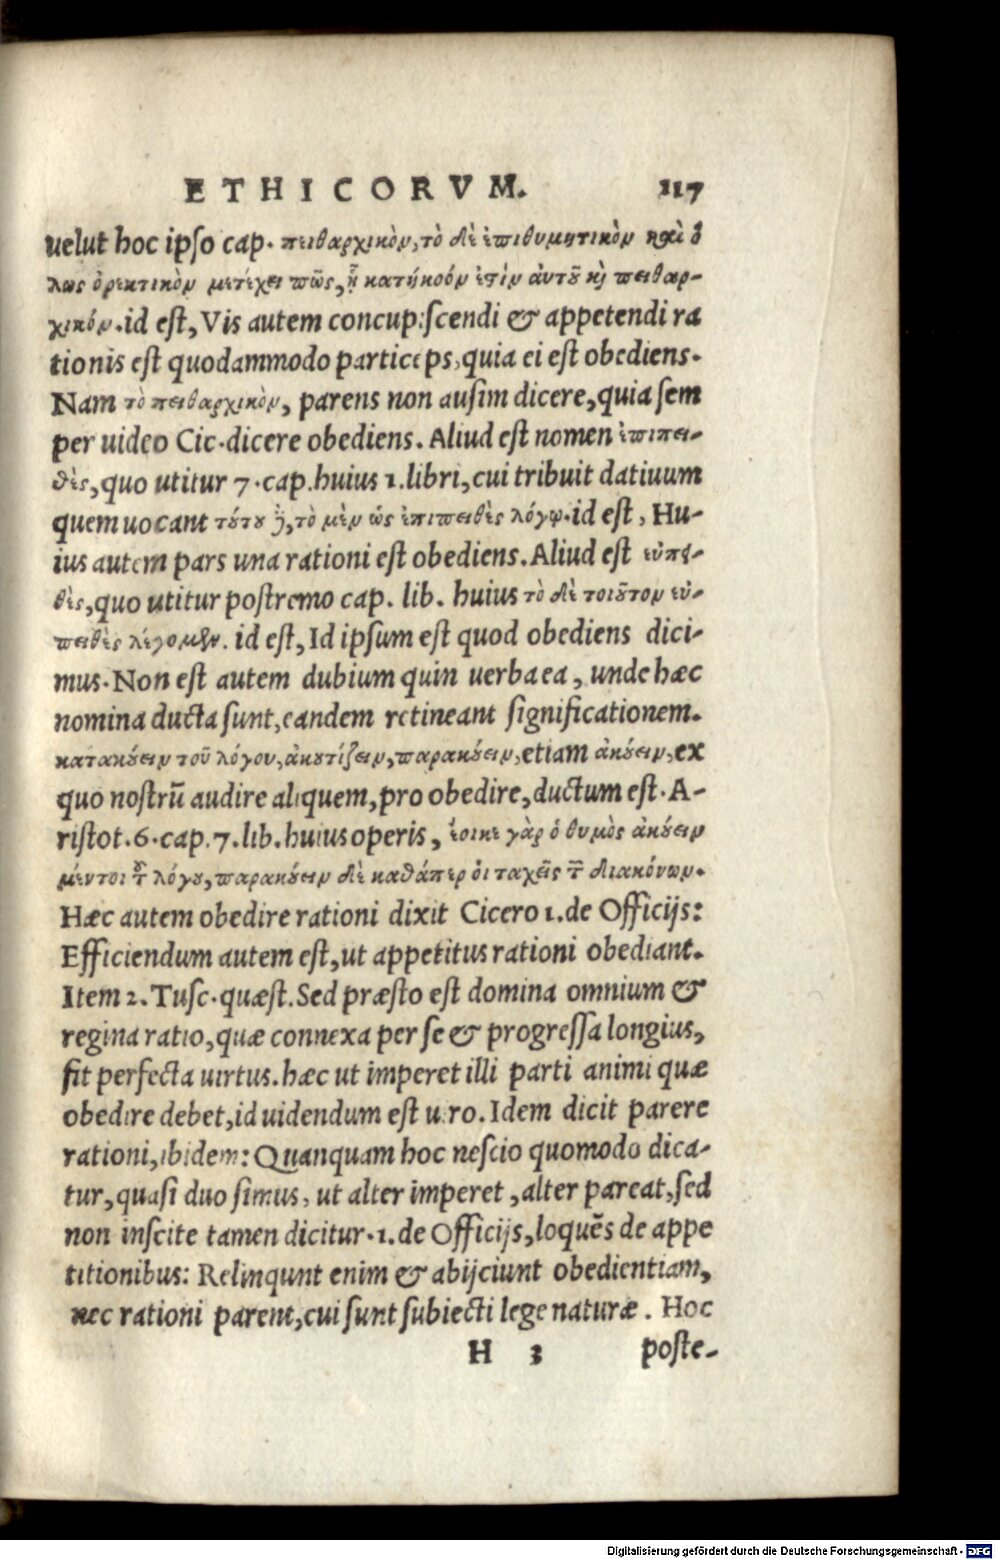 ETHICORVM. 117
uelut hoc ipſo cap. πειθαρχικὸν, τὸ δὲ ἐπιθυμητικὸν καὶ ὅ
λως ὀρεκτικὸν μετέχει πῶς, ᾗ κατήκοόν ἐστιν αὐτοῦ καὶ πειθαρ-
χικόν. id eſt, Vis autem concupiſcendi & appetendi ra
tionis eſt quodammodo particeps, quia ei eſt obediens.
Nam τὸ πειθαρχικὸν, parens non auſim dicere, quia ſem
per uideo Cic. dicere obediens. Aliud eſt nomen ἐπιπει-
θὲς, quo utitur 7. cap. huius 1. libri, cui tribuit datiuum
quem uocant τούτου δὲ, τὸ μὲν ὡς ἐπιπειθὲς λόγῳ. id eſt, Hu-
ius autem pars una rationi eſt obediens. Aliud eſt εὐπει-
θὲς, quo utitur poſtremo cap. lib. huius τὸ δὲ τοιοῦτον εὐ-
πειθὲς λέγομεν. id eſt, Id ipſum eſt quod obediens dici-
mus. Non eſt autem dubium quin uerba ea, unde hæc
nomina ducta ſunt, eandem retineant ſignificationem.
κατακούειν τοῦ λόγου, ἀκουτίζειν, παρακούειν, etiam ἀκούειν, ex
quo noſtrũ audire aliquem, pro obedire, ductum eſt. A-
riſtot. 6. cap. 7. lib. huius operis, ἔοικε γὰρ ὁ θυμὸς ἀκούειν
μέντοι τοῦ λόγου, παρακούειν δὲ καθάπερ οἱ ταχεῖς τῶν διακόνων.
Hæc autem obedire rationi dixit Cicero 1. de Officijs:
Efficiendum autem eſt, ut appetitus rationi obediant.
Item 2. Tuſc. quæſt. Sed præſto eſt domina omnium &
regina ratio, quæ connexa per ſe & progreſſa longius,
fit perfecta uirtus. hæc ut imperet illi parti animi quæ
obedire debet, id uidendum eſt uiro. Idem dicit parere
rationi, ibidem: Quanquam hoc neſcio quomodo dica-
tur, quaſi duo ſimus, ut alter imperet, alter pareat, ſed
non inſcite tamen dicitur. 1. de Officijs, loquẽs de appe
titionibus: Relinqunt enim & abijciunt obedientiam,
nec rationi parent, cui ſunt ſubiecti lege naturæ. Hoc
H 3 poſte-
Digitalisierung gefördert durch die Deutsche Forschungsgemeinschaft - DFG